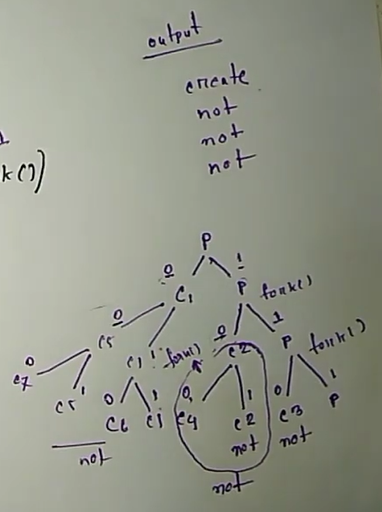 output
create
not
not
not
k())
P
0 1
C1 P fork()
0 0 1
C5 C1 fork() C2 P fork()
0 1 0 1 0 1 0 1
C7 C5 C6 C1 C4 C2 C3 P
not not
not
not